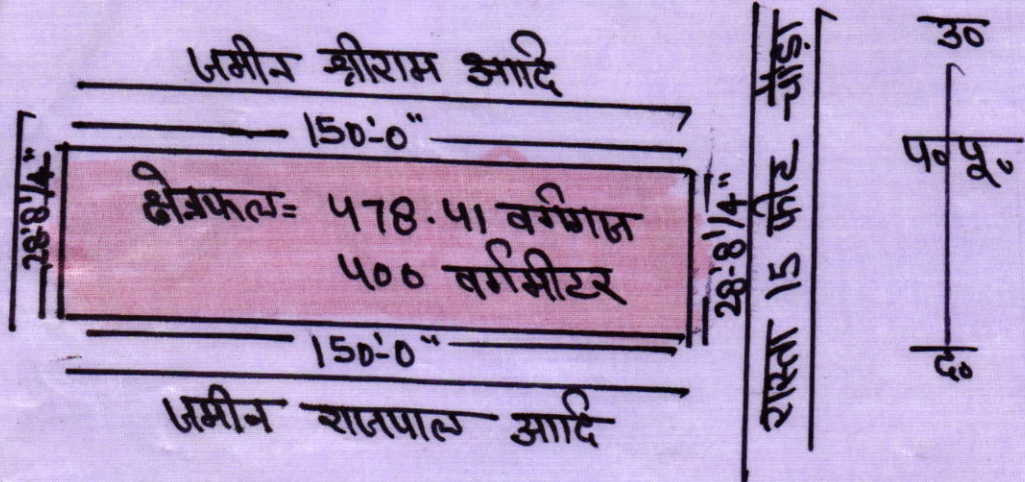 जमीन श्रीराम आदि
150'-0"
28'-8 1/4"
क्षेत्रफल= 478.41 वर्गगज
400 वर्गमीटर
28'-8 1/4"
150'-0"
जमीन राजपाल आदि
रास्ता 15 फीट चौड़ा
उ०
प० पू०
द०